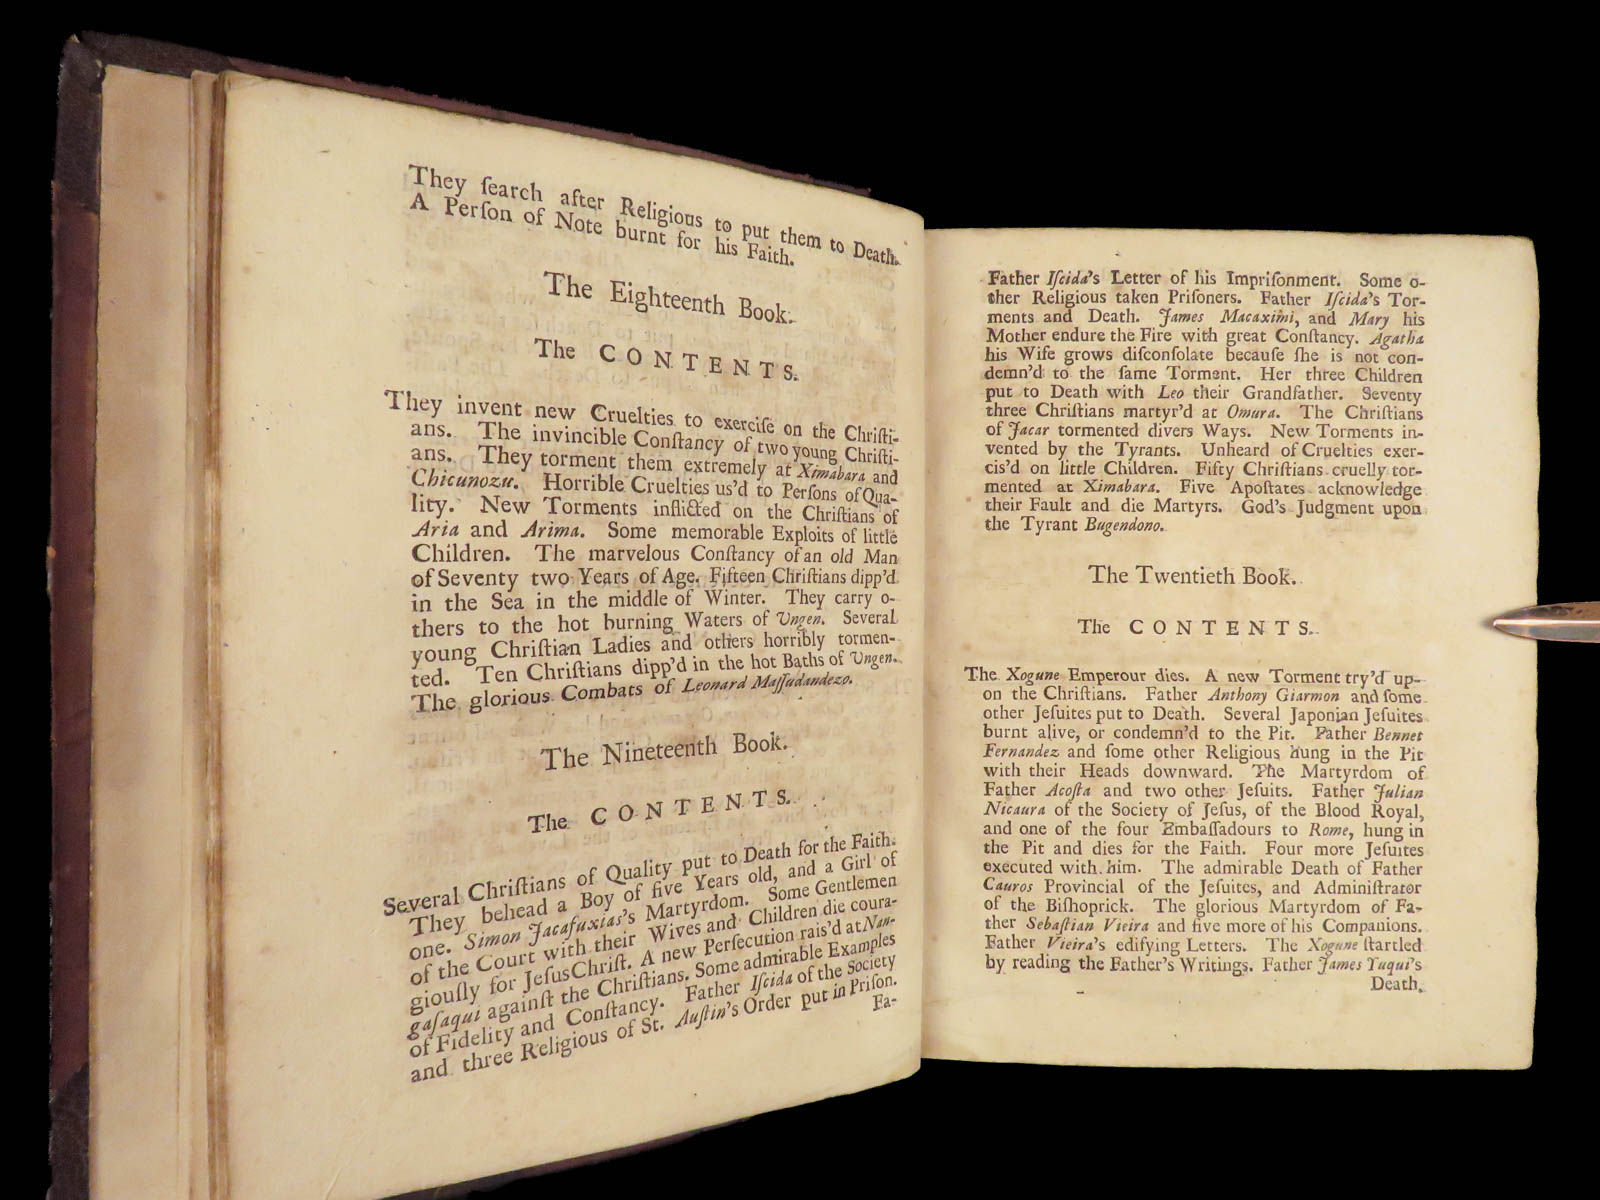 They ſearch after Religious to put them to Death.
A Perſon of Note burnt for his Faith.
The Eighteenth Book.
The CONTENTS.
They invent new Cruelties to exerciſe on the Chriſti-
ans. The invincible Conſtancy of two young Chriſti-
ans. They torment them extremely at Ximabara and
Chicunozu. Horrible Cruelties us'd to Perſons of Qua-
lity. New Torments inflicted on the Chriſtians of
Aria and Arima. Some memorable Exploits of little
Children. The marvelous Conſtancy of an old Man
of Seventy two Years of Age. Fifteen Chriſtians dipp'd
in the Sea in the middle of Winter. They carry o-
thers to the hot burning Waters of Ungen. Several
young Chriſtian Ladies and others horribly tormen-
ted. Ten Chriſtians dipp'd in the hot Baths of Ungen.
The glorious Combats of Leonard Maſſudandezo.
The Nineteenth Book.
The CONTENTS.
Several Chriſtians of Quality put to Death for the Faith.
They behead a Boy of five Years old, and a Girl of
one. Simon Jacafuxias's Martyrdom. Some Gentlemen
of the Court with their Wives and Children die coura-
giouſly for Jeſus Chriſt. A new Perſecution rais'd at Nan-
gaſaqui againſt the Chriſtians. Some admirable Examples
of Fidelity and Conſtancy. Father Iſcida of the Society
and three Religious of St. Auſtin's Order put in Priſon.
Fa-
Father Iſcida's Letter of his Impriſonment. Some o-
ther Religious taken Priſoners. Father Iſcida's Tor-
ments and Death. James Macaximi, and Mary his
Mother endure the Fire with great Conſtancy. Agatha
his Wife grows diſconſolate becauſe ſhe is not con-
demn'd to the ſame Torment. Her three Children
put to Death with Leo their Grandfather. Seventy
three Chriſtians martyr'd at Omura. The Chriſtians
of Jacar tormented divers Ways. New Torments in-
vented by the Tyrants. Unheard of Cruelties exer-
cis'd on little Children. Fifty Chriſtians cruelly tor-
mented at Ximabara. Five Apoſtates acknowledge
their Fault and die Martyrs. God's Judgment upon
the Tyrant Bugendono.
The Twentieth Book.
The CONTENTS.
The Xogune Emperour dies. A new Torment try'd up-
on the Chriſtians. Father Anthony Giarmon and ſome
other Jeſuites put to Death. Several Japonian Jeſuites
burnt alive, or condemn'd to the Pit. Father Bennet
Fernandez and ſome other Religious hung in the Pit
with their Heads downward. The Martyrdom of
Father Acoſta and two other Jeſuits. Father Julian
Nicaura of the Society of Jeſus, of the Blood Royal,
and one of the four Embaſſadours to Rome, hung in
the Pit and dies for the Faith. Four more Jeſuites
executed with him. The admirable Death of Father
Cauros Provincial of the Jeſuites, and Adminiſtrator
of the Biſhoprick. The glorious Martyrdom of Fa-
ther Sebaſtian Vieira and five more of his Companions.
Father Vieira's edifying Letters. The Xogune ſtartled
by reading the Father's Writings. Father James Yuqui's
Death,